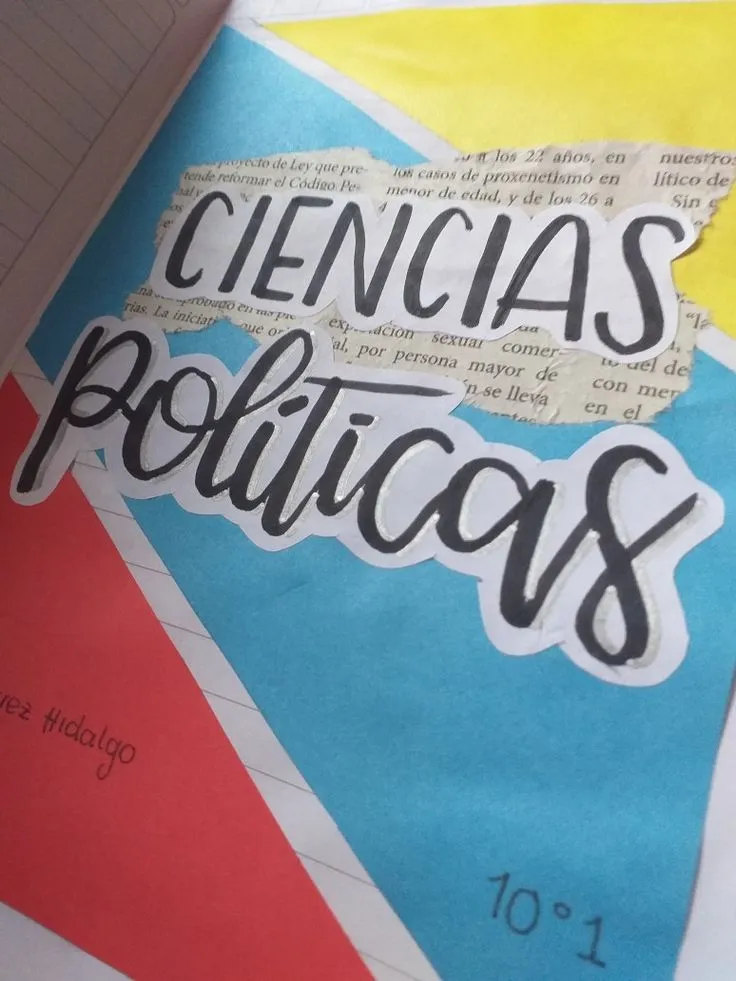 proyecto de Ley que pre-
tende reformar el Código Pe-
a los 22 años, en
los casos de proxenetismo en
menor de edad, y de los 26 a
nuestros
lítico de
Sin
CIENCIAS
aprobado en
rias. La iniciati
que
sexual comer-
al, por persona mayor de
se lleva
del de
con mer
en el
políticas
Hidalgo
10°1